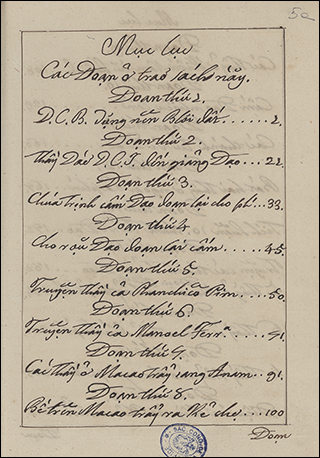 Mục lục
Các Đoạn ở trao sách nầy.
Đoạn thứ 1.
D. C. B. dựng nên Blời đất. ...... 1.
Đoạn thứ 2.
Thầy Dòũ D. C. J. đến giảng Đạo... 21.
Đoạn thứ 3.
Chúa Trịnh cấm Đạo đoạn lại cho ph... 33.
Đoạn thứ 4
Cho rọu Đạo đoạn lại cấm. .... 45.
Đoạn thứ 5.
Truyện thầy cả Phanchicô Pim. .... 50.
Đoạn thứ 6.
Truyện thầy cả Manoel Ferrª .... 71.
Đoạn thứ 7.
Các thầy ở Macao trẩy sang Anam.. 91.
Đoạn thứ 8.
Bề trên Macao trẩy ra Kẻ chợ.... 100
Đoạn